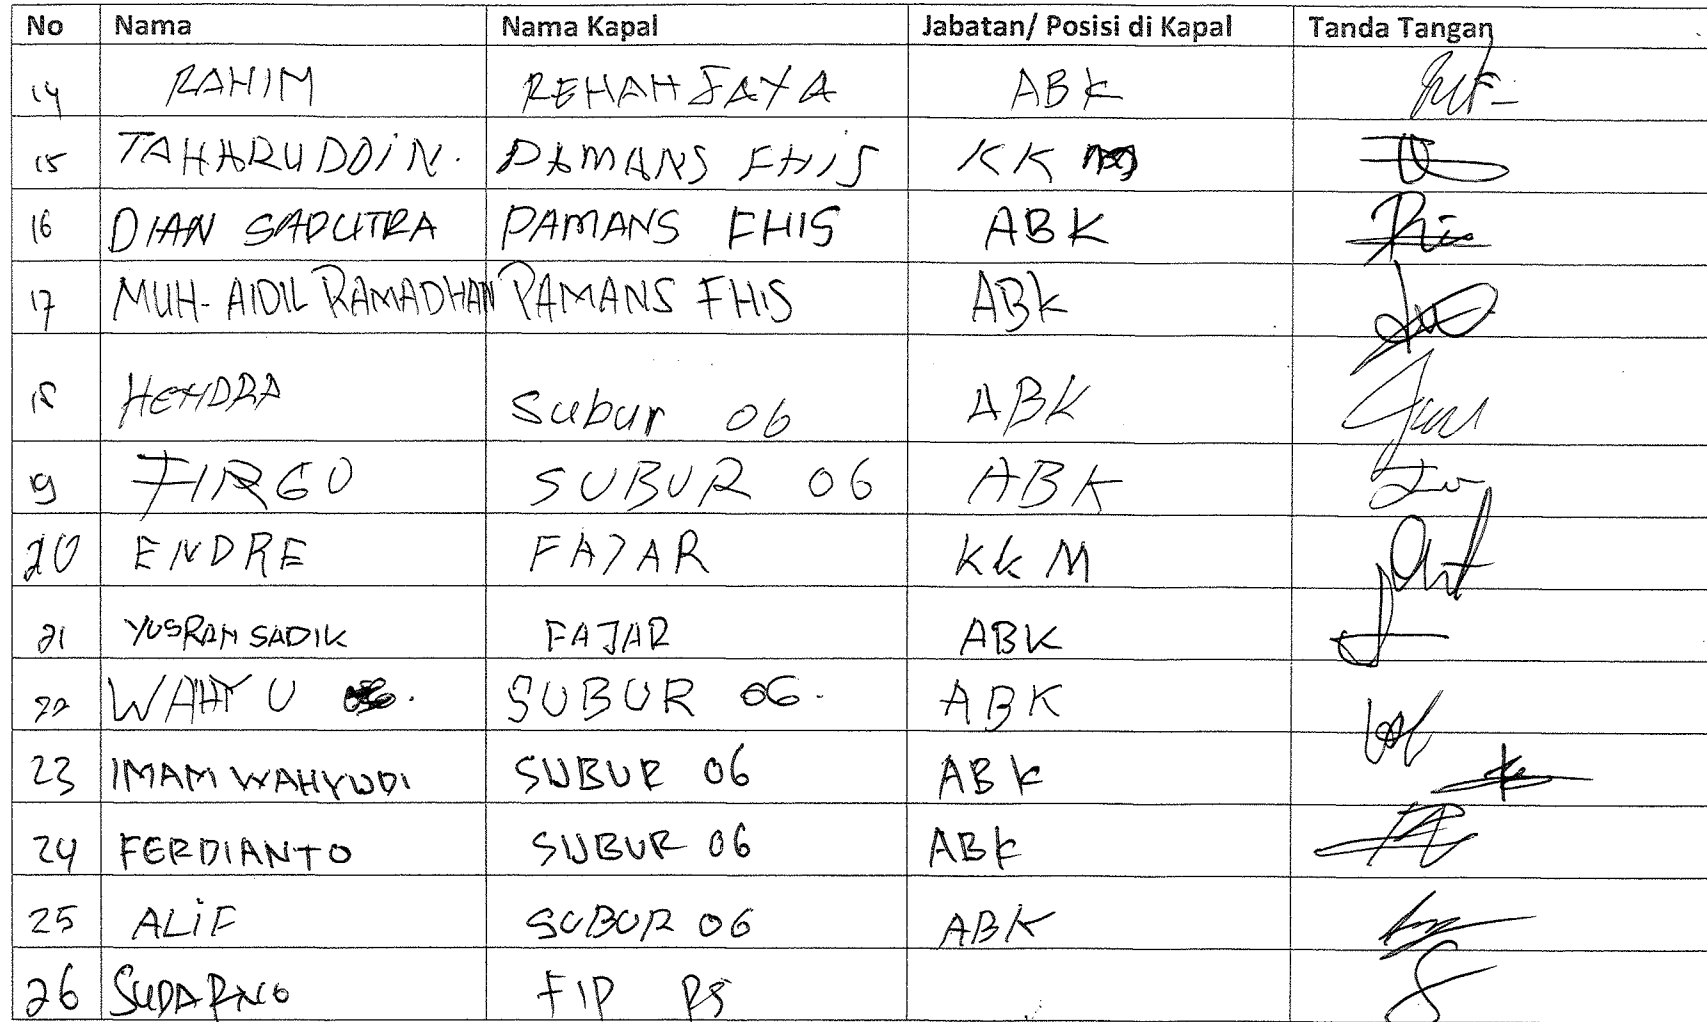 No Nama Nama Kapal Jabatan/ Posisi di Kapal Tanda Tangan
14 RAHIM REHAH JAYA ABK
15 TAHARUDDIN. PAMANS FHIS KK
16 DIAN SAPUTRA PAMANS FHIS ABK
17 MUH- AIDIL RAMADHAN PAMANS FHIS ABK
18 HENDRA Subur 06 ABK
19 FIRGO SUBUR 06 ABK
20 ENDRE FAJAR KKM
21 YUSRAN SADIK FAJAR ABK
22 WAHYU SUBUR 06. ABK
23 IMAM WAHYUDI SUBUR 06 ABK
24 FERDIANTO SUBUR 06 ABK
25 ALiF SUBUR 06 ABK
26 SUDARNO FIP PS